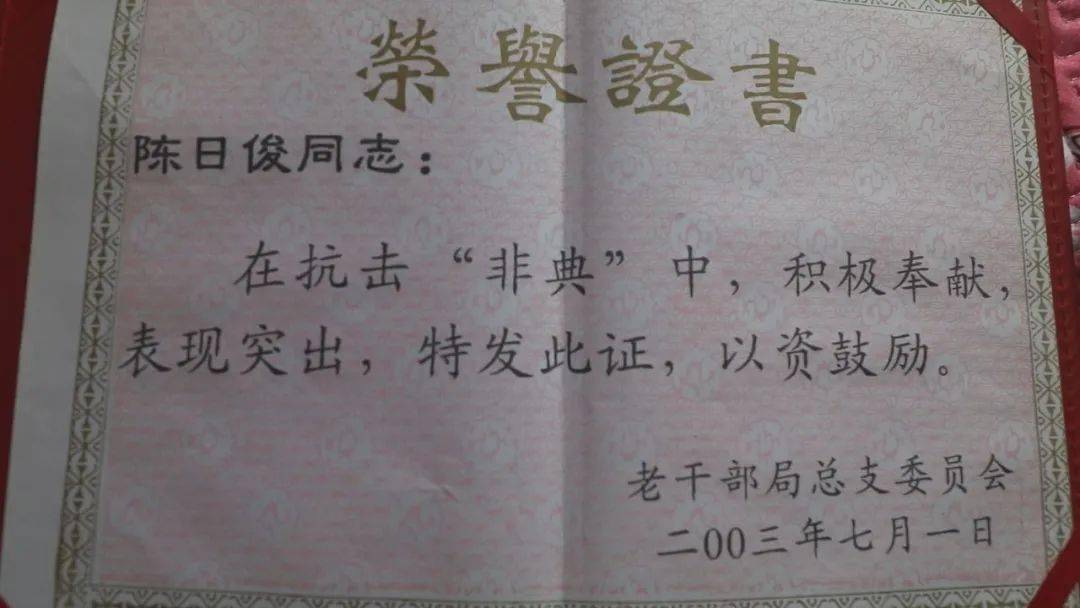 榮譽證書
陈日俊同志：
在抗击“非典”中，积极奉献，
表现突出，特发此证，以资鼓励。
老干部局总支委员会
二00三年七月一日